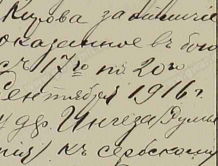 Кулова за отличіе
оказанное въ бою
съ 17го по 20го
Сентября 1916 г.
у дер. Ингеза/Румы
нія) къ сербскому